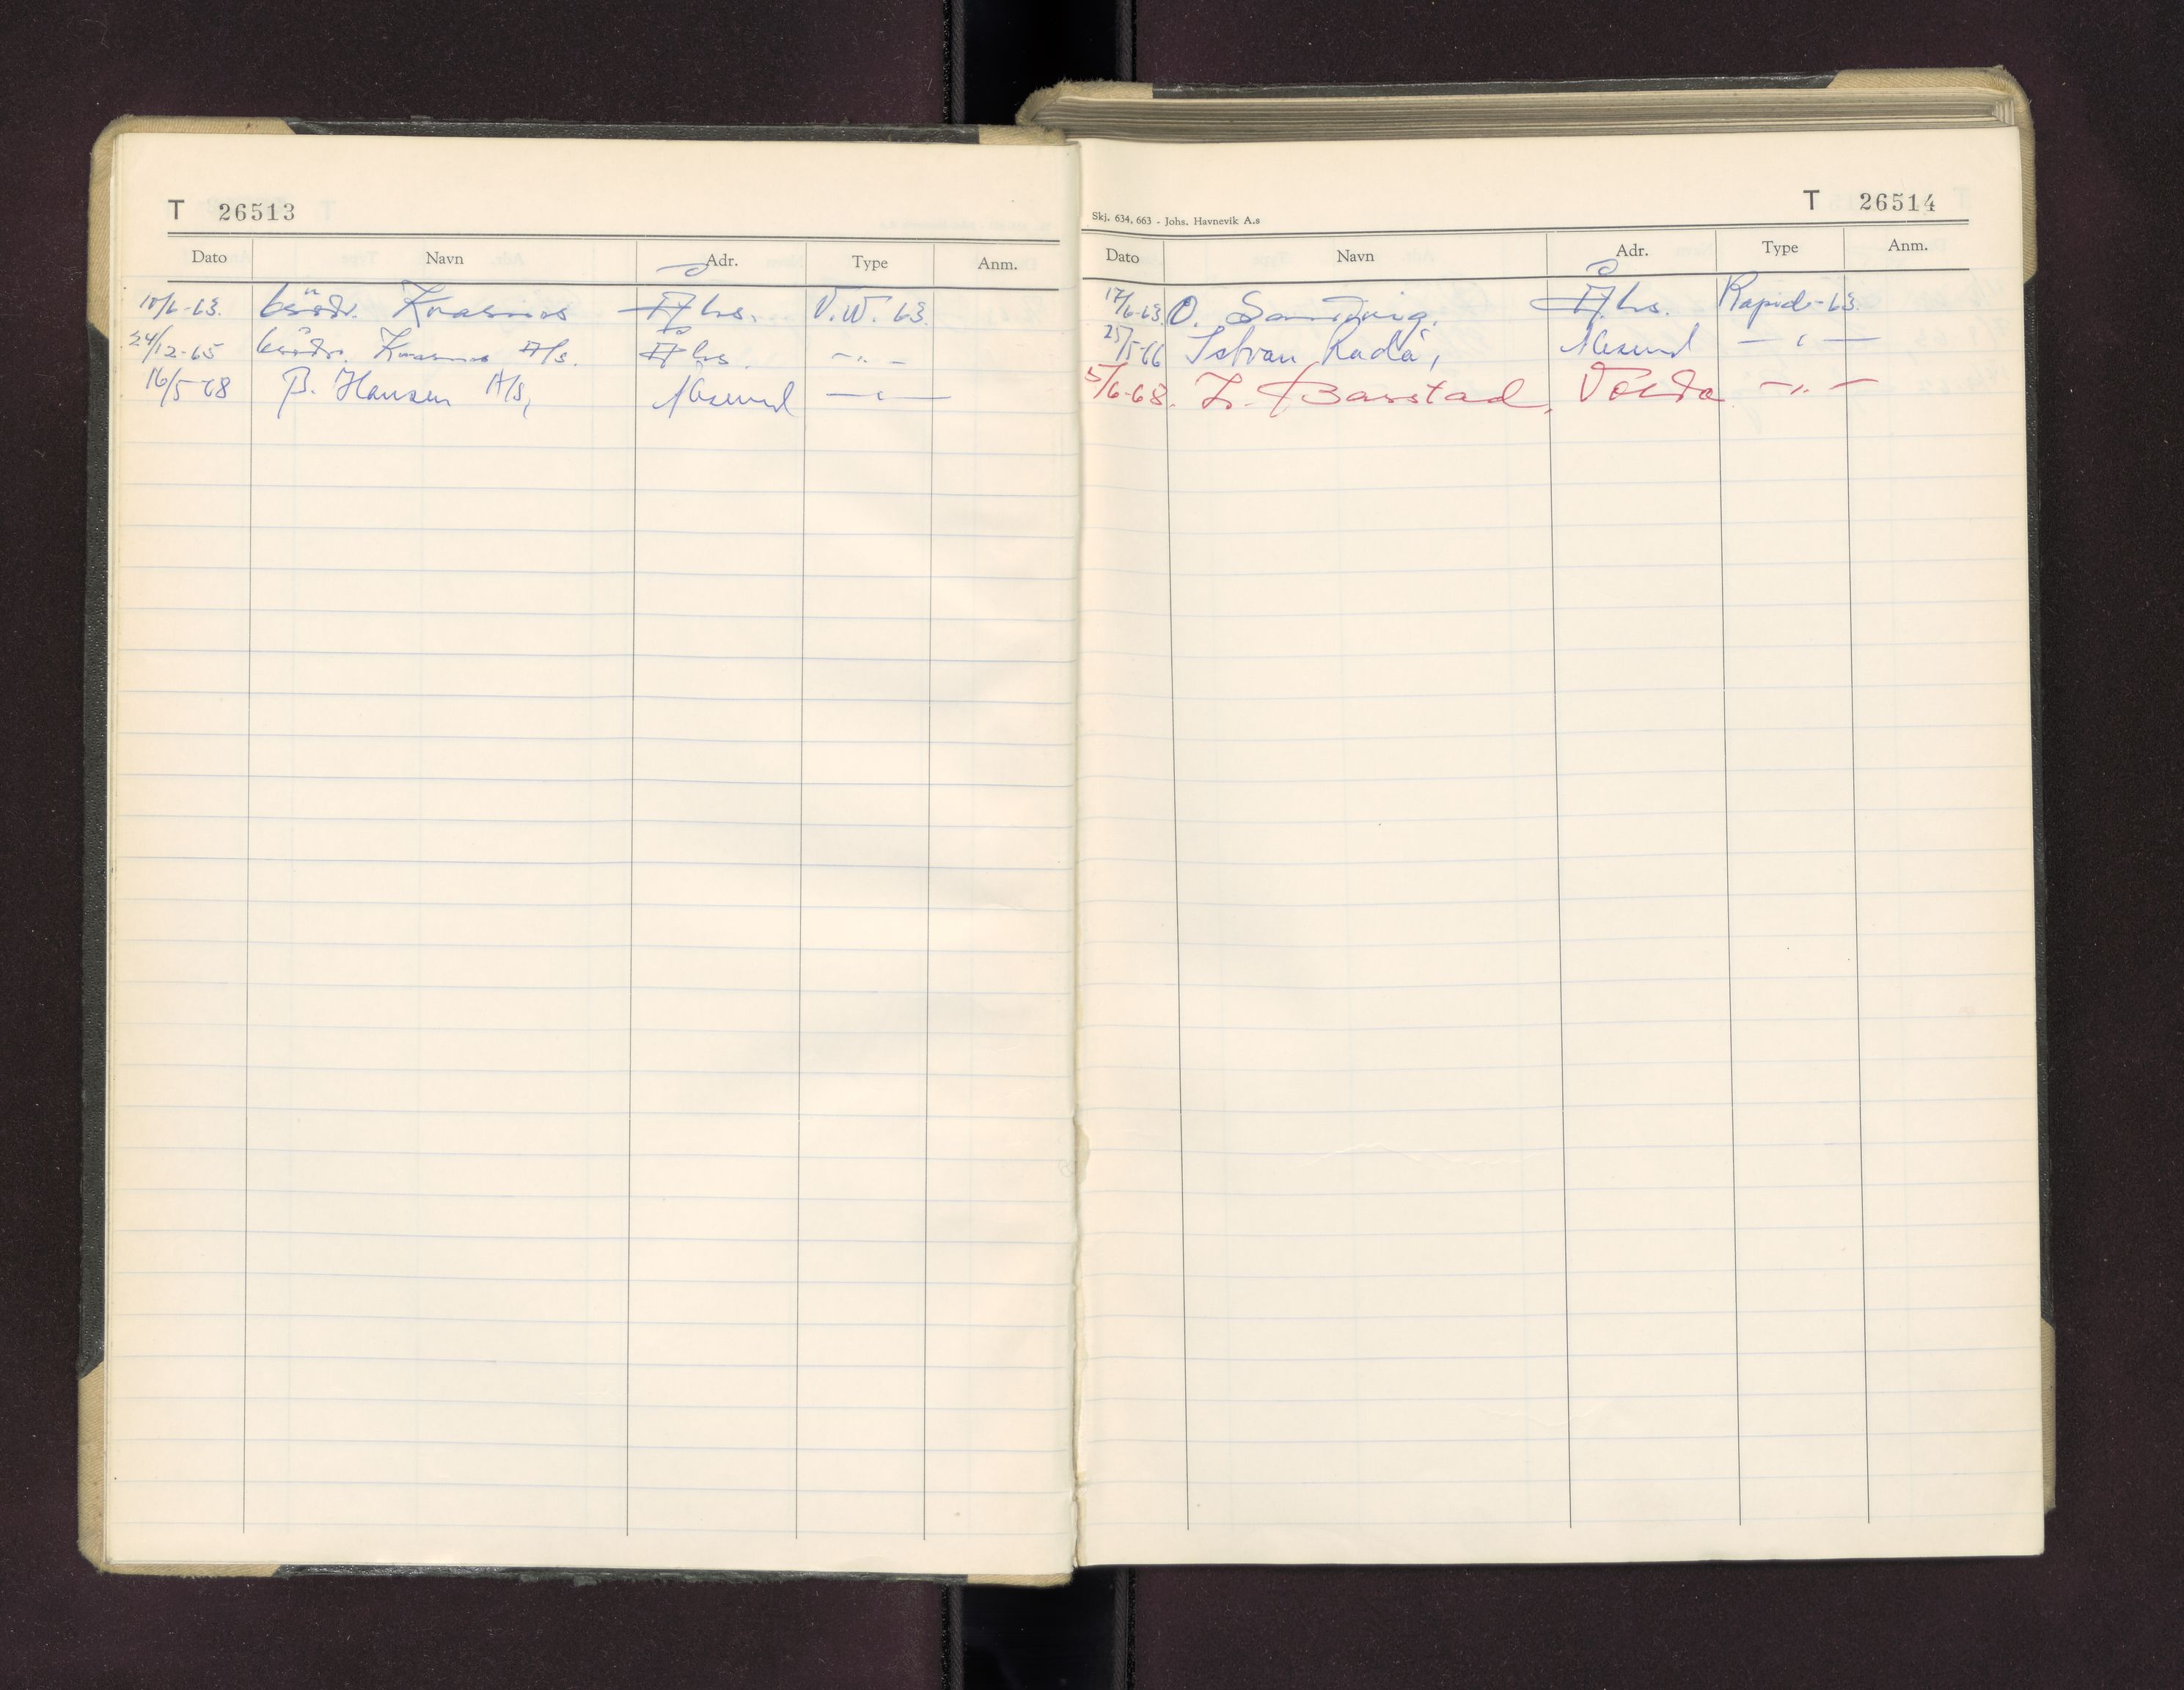 T 26513
Dato Navn Adr. Type Anm.
10/6-63. brödr. Å V.W. 63.
24/12-65 brödr. A/s. Å -"-
16/5-68 B. Hansen A/s, Ålesund -"-
T 26514
Skj. 634, 663 - Johs. Havnevik A.s
Dato Navn Adr. Type Anm.
17/6-63. O. Sandvig. Å Rapid-63.
25/5-66 Istvan Radá, Ålesund -"-
5/6-68. Barstad, Volda -"-